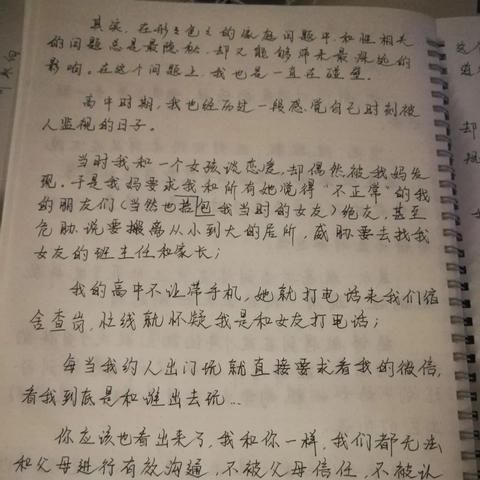 其实,在形形色色的家庭问题中,和性相关
的问题总是最隐秘,却又能够带来最深远的
影响。在这个问题上,我也是一直在碰壁。
高中时期,我也经历过一段感觉自己时刻被
人监视的日子。
当时我和一个女孩谈恋爱,却偶然被我妈发
现。于是我妈要求我和所有她觉得“不正常”的我
的朋友们(当然也包我当时的女友)绝友,甚至
危胁说要搬离从小到大的居所,威胁要去找我
女友的班主任和家长;
我的高中不让带手机,她就打电话来我们宿
舍查岗,忙线就怀疑我是和女友打电话;
每当我约人出门玩就直接要求看我的微信,
看我到底是和谁出去玩...
你应该也看出来了,我和你一样,我们都无法
和父母进行有效沟通,不被父母信任,不被认